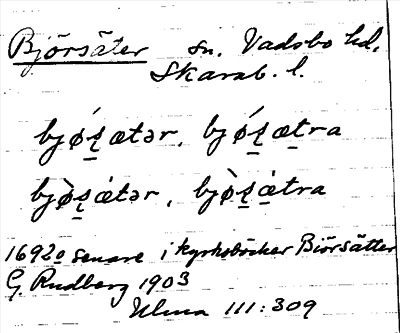 Björsäter sn. Vadsbo hd.
Skarab. l.
bjǿs̠ætər, bjǿs̠æt̠ra
bjø̀s̠ætər, bjø̀s̠ætra
1692 o senare i kyrkoböcker Biörsätter
G. Rudberg 1903
Ulma 111:309